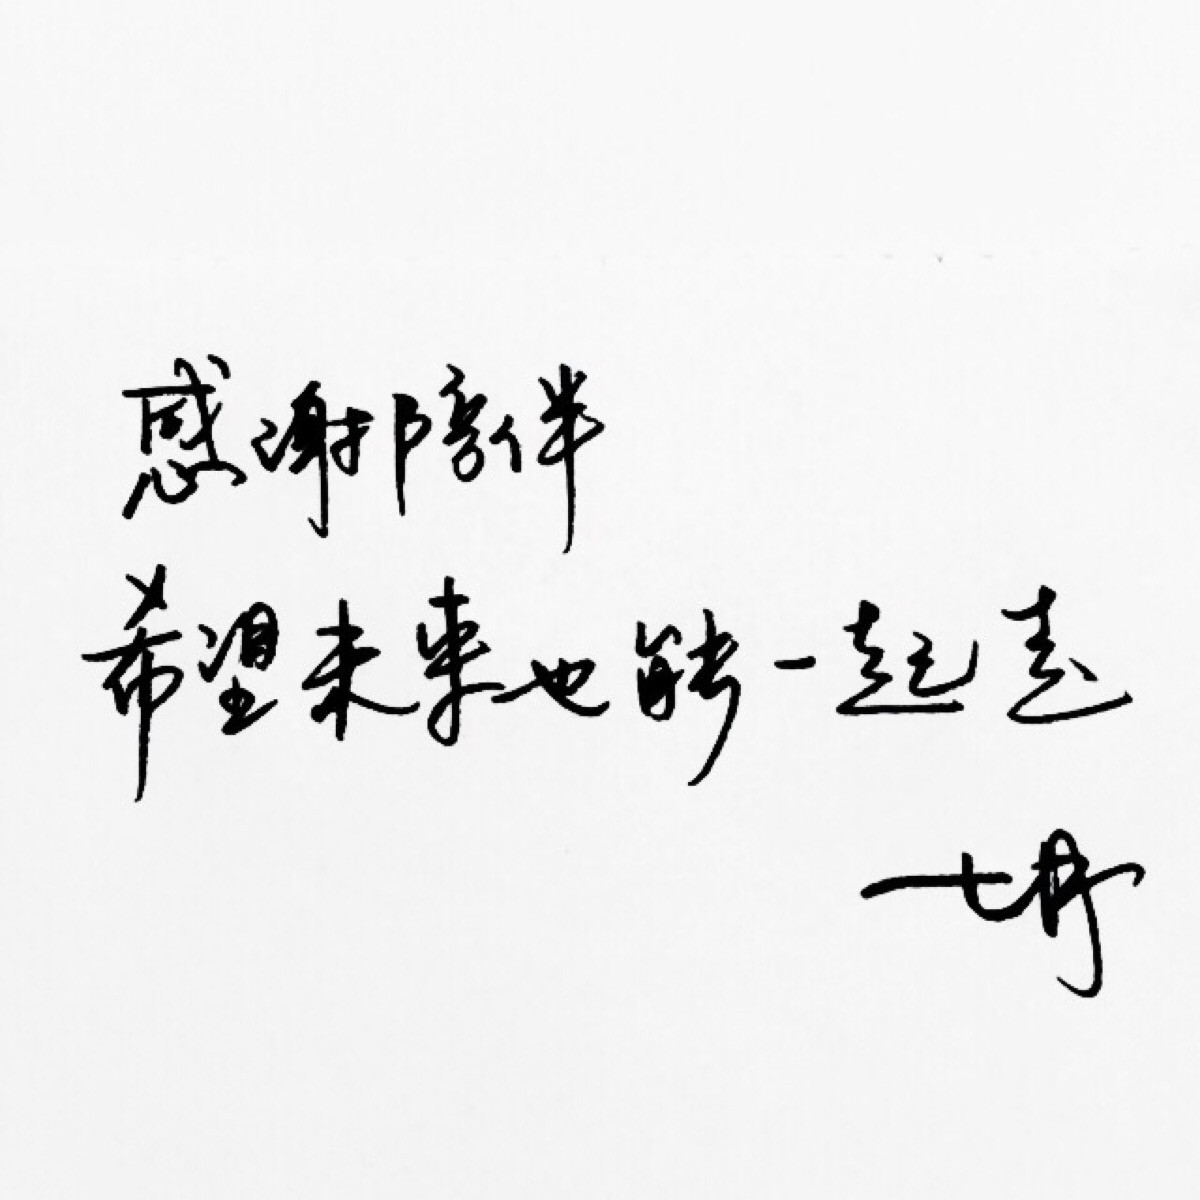 感谢陪伴
希望未来也能一起走
七